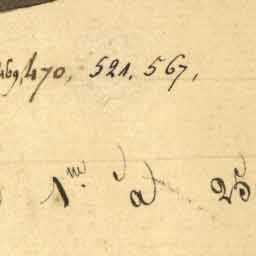 469, 470, 521. 567,
1re à 25